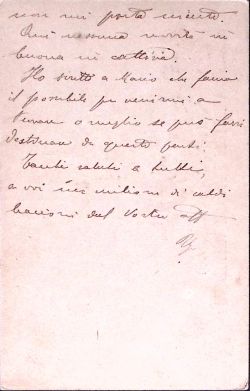 non mi porta niente.
Qui nessuna novità nè
buona nè cattiva.
Ho scritto a Mario che faccia
il possibile per venirmi a
trovare o meglio se può farsi
destinare da queste parti.
Tanti saluti a tutti,
a voi un milione di caldi
bacioni dal vostro aff